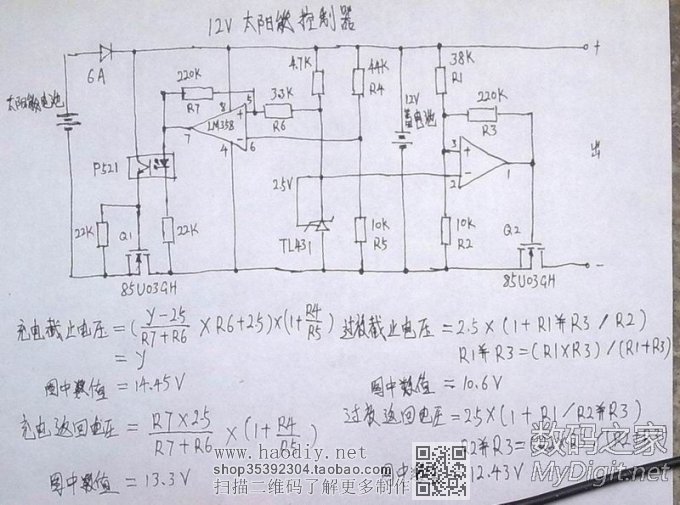 12V 太阳能控制器
6A
太阳能电池
P521
22K
Q1
85U03GH
22K
220K
R7
7
LM358
8
4
+
-
5
6
3.3K
R6
4.7K
44K
R4
2.5V
TL431
10K
R5
12V
蓄电池
38K
R1
220K
R3
3
+
2
-
1
10K
R2
Q2
85U03GH
+
出
-
充电截止电压=(Y-2.5/R7+R6 × R6+2.5)×(1+R4/R5)
=Y
图中数值=14.45V
充电返回电压=R7×2.5/R7+R6 ×(1+R4/R5)
图中数值=13.3V
过放截止电压=2.5×(1+R1并R3/R2)
R1并R3=(R1×R3)/(R1+R3)
图中数值=10.6V
过放返回电压=2.5×(1+R1/R2并R3)
R2并R3=
图中数值=12.43V
www.haodiy.net
shop35392304.taobao.com
扫描二维码了解更多制作
数码之家
MyDigit.net